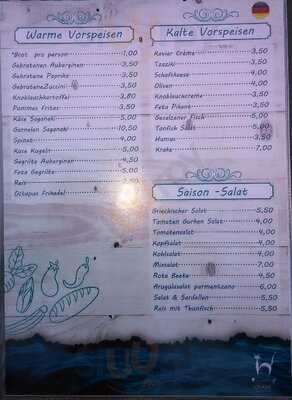 Warme Vorspeisen
*Brot pro person 1,00
Gebratenen Auberginen 3,50
Gebratene Paprika 3,50
GebrateneZuccini 3,50
Knoblauchkartoffel 3,80
Pommes Frites 3,50
Käse Saganaki 5,00
Garnelen Saganaki 10,50
Spinat 4,00
Käse Kugeln 5,00
Gegrillte Auberginen 4,50
Feta Gegrillte 5,00
Reis
Octapus Frikadel
Kalte Vorspeisen
Kaviar Crème 3,50
Tzaziki 3,50
Schafskaese 4,00
Oliven 4,00
Knoblauchcreme 3,50
Feta Pikant 3,50
Gesalzener Fisch 5,00
Tonfisch 5,00
Humus 3,50
Krake 7,00
Saison -Salat
Griechischer Salat 5,50
Tomaten Gurken Salat 4,00
Tomatensalat 4,00
Kopfsalat 4,00
Kohlsalat 4,00
Mixsalat 7,00
Rote Beete 4,50
Arugulasalat parmentzano 6,00
Salat & Sardellen 5,50
Reis mit Thunfisch 5,50